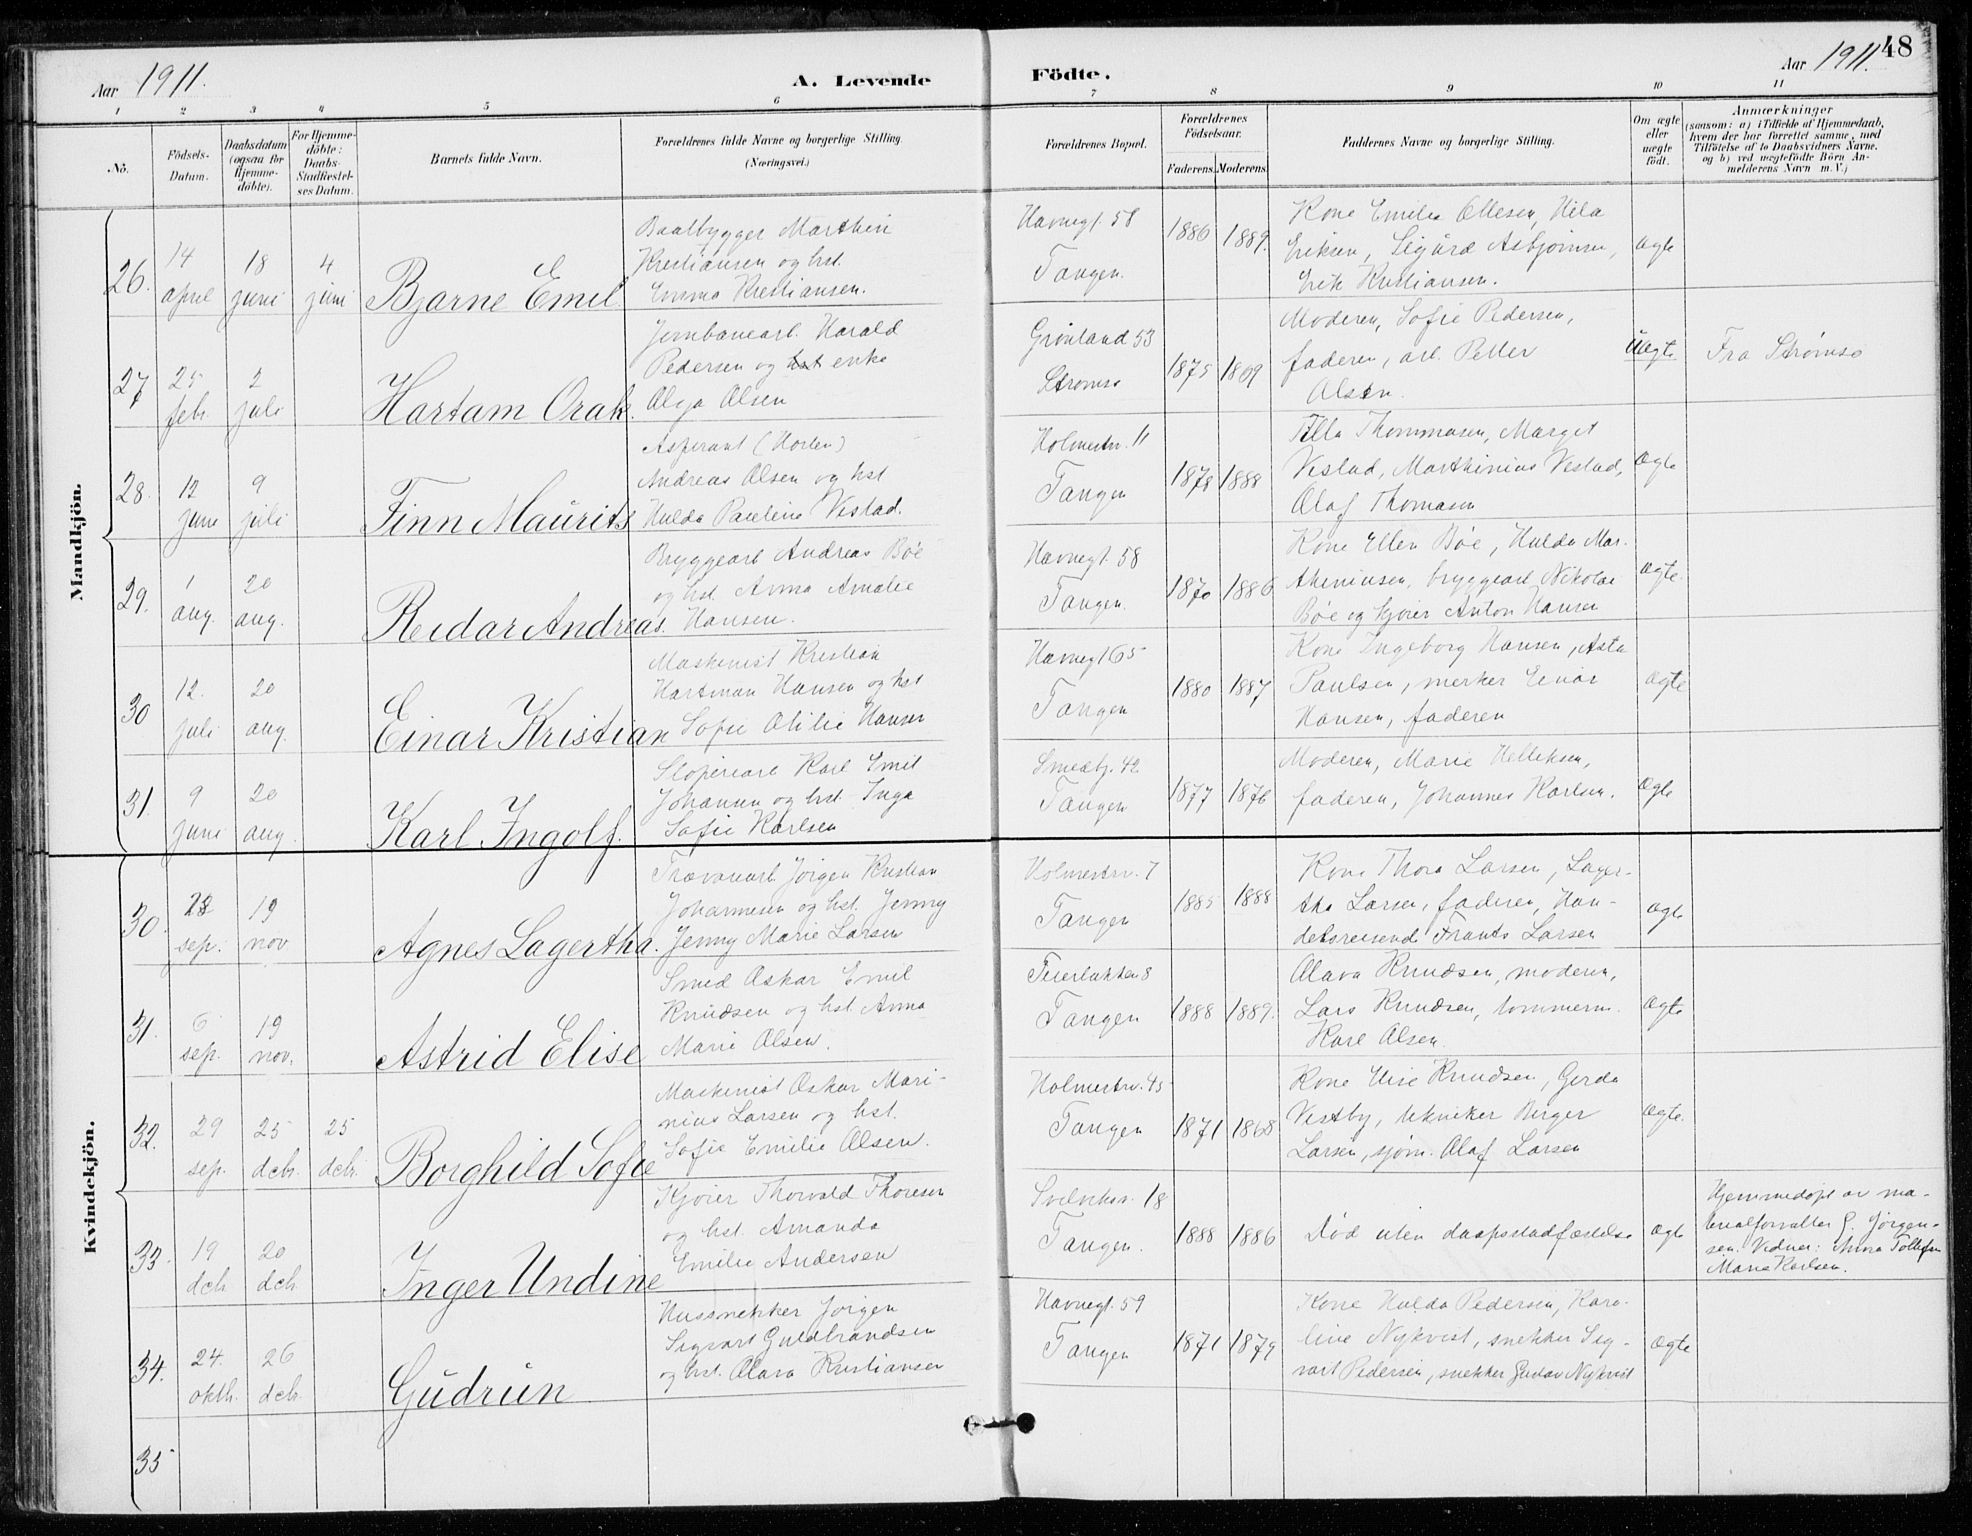 Aar 1911.
A. Levende
Födte.
Aar 1911.
48
1 2 3 4 5 6 7 8 9 10 11
No.
Födsels-
Datum.
Daabsdatum
(ogsaa for
Hjemme-
döbte).
For Hjemme-
döbte:
Daabs-
Stadfæstel-
ses Datum.
Barnets fulde Navn.
Forældrenes fulde Navne og borgerlige Stilling.
(Næringsvei.)
Forældrenes Bopæl.
Forældrenes
Födselsaar.
Faderens.
Moderens.
Faddernes Navne og borgerlige Stilling.
Om ægte
eller
uægte
født.
Anmærkninger
(saasom: a) i Tilfælde af Hjemmedaab,
hvem der har forrettet samme, med
Tilföielse af to Daabsvidners Navne,
og b) ved uægtefödte Börn An-
melderens Navn m. V.)
Mandkjön.
26.
14
april
18
juni
4
juni
Bjarne Emil
Baatbygger Marthin
Kristiansen og hst.
Emma Kristiansen.
Havnegt. 58
Tangen.
1886
1889.
Kone Emilie Ollesen, Hila
Eriksen, Sigurd Asbjørnsen,
Erik Kristiansen.
Ægte
27
25
febr.
2
juli
Hartam Orak.
Jernbanearb. Harald
Pedersen og hst enke
Olga Olsen
Grønland 53
Strømsø
1875
1869
Moderen, Sofie Pedersen,
faderen, arb. Petter
Olsen.
Uægte
Fra Strømsø
28.
12
juni
9
juli
Finn Maurits
Aspirant (Horten)
Andreas Olsen og hst
Hulda Pauline Vestad.
Holmestrv. 11
Tangen
1878
1888
Tilla Thommasen, Marget
Vestad, Marthinius Vestad,
Olaf Thomasen
Ægte
29.
1
aug.
20
aug.
Reidar Andreas.
Bryggearb Andreas Bøe
og hst. Anna Amalie
Hansen.
Havnegt. 58
Tangen.
1870
1886
Kone Ellen Bøe, Hulda Mar-
theninsen, bryggearb Nikolai
Bøe og kjøier Anton Hansen
Ægte.
30
12.
juli
20
aug.
Einar Kristian
Maskinist Kristian
Hartman Hansen og hst
Sofie Otilie Hansen
Havnegt 65
Tangen
1880
1887
Kone Ingeborg Hansen, Asta
Paulsen, merker Einar
Hansen, faderen
Ægte
31.
9
juni
20
aug.
Karl Ingolf.
Sloperearb Karl Emil
Johansen og hst. Inga
Sofie Karlsen
Smedbj. 42
Tangen
1877
1876
Moderen, Marie Helliksen,
faderen, Johannes Karlsen.
Ægte
Kvindekjön.
30.
28
sep.
19
nov
Agnes Lagertha.
Trævarearb. Jörgen Kristian
Johannesen og hst. Jenny
Jenny Marie Larsen
Holmestrv. 7
Tangen
1885
1888
Kone Thora Larsen, Lager-
tha Larsen, faderen, Han-
delsreisend Frants Larsen
Ægte
31.
6
sep.
19
nov.
Astrid Elise
Smed Oskar Emil
Knudsen og hst. Anna
Marie Olsen.
Feierbakken 8
Tangen
1888
1889.
Olava Knudsen, moderen,
Lars Knudsen, tommerm.
Kare Olsen.
Ægte
32.
29
sep.
25
dcb.
25
dcb.
Borghild Sofie
Maskinist Oskar Mari-
nius Larsen og hst.
Sofie Emilie Olsen.
Holmestrv. 45
Tangen
1871
1868
Kone Elise Knudsen, Gerda
Vestby, tekniker Birger
Larsen, sjøm. Olaf Larsen
Ægte.
33.
19
dcb.
20
dcb.
Inger Undine
Kjøier Thorvald Thoresen
og hst. Amanda
Emilie Andersen
Svelviksv. 18
Tangen.
1888
1886
Død uten daapsstadfæstelse
Ægte
Hjemmedøpt av ma-
terialforvalter G. Jørgen-
sen. Vidner: Anna Tollefsen
Marie Karlsen.
34.
24.
oktb.
26
dcb.
Gudrun
Hussnekker Jørgen
Sigvart Guldbrandsen
og hst. Olava Kristiansen
Havnegt. 59
Tangen
1871
1879
Kone Hulda Pedersen, Karo-
line Nykvist, snekker Sig-
vart Pedersen, snekker Gustav Nykvist
Ægte
35